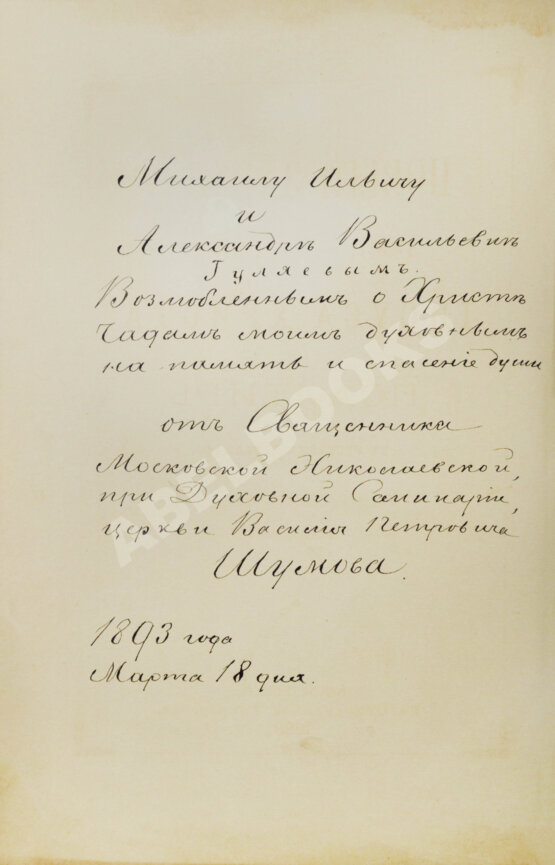 Михаилу Ильичу
и
Александрѣ Васильевнѣ
Гуляевымъ.
Возлюбленнымъ о Христѣ
Чадамъ моимъ духовнымъ
на память и спасенiе души
отъ Священника
Московской Николаевской,
при Духовной Семинарiи,
церкви Василiя Петровича
Шумова.
1893 года
Марта 18 дня.
ABELBOOKS